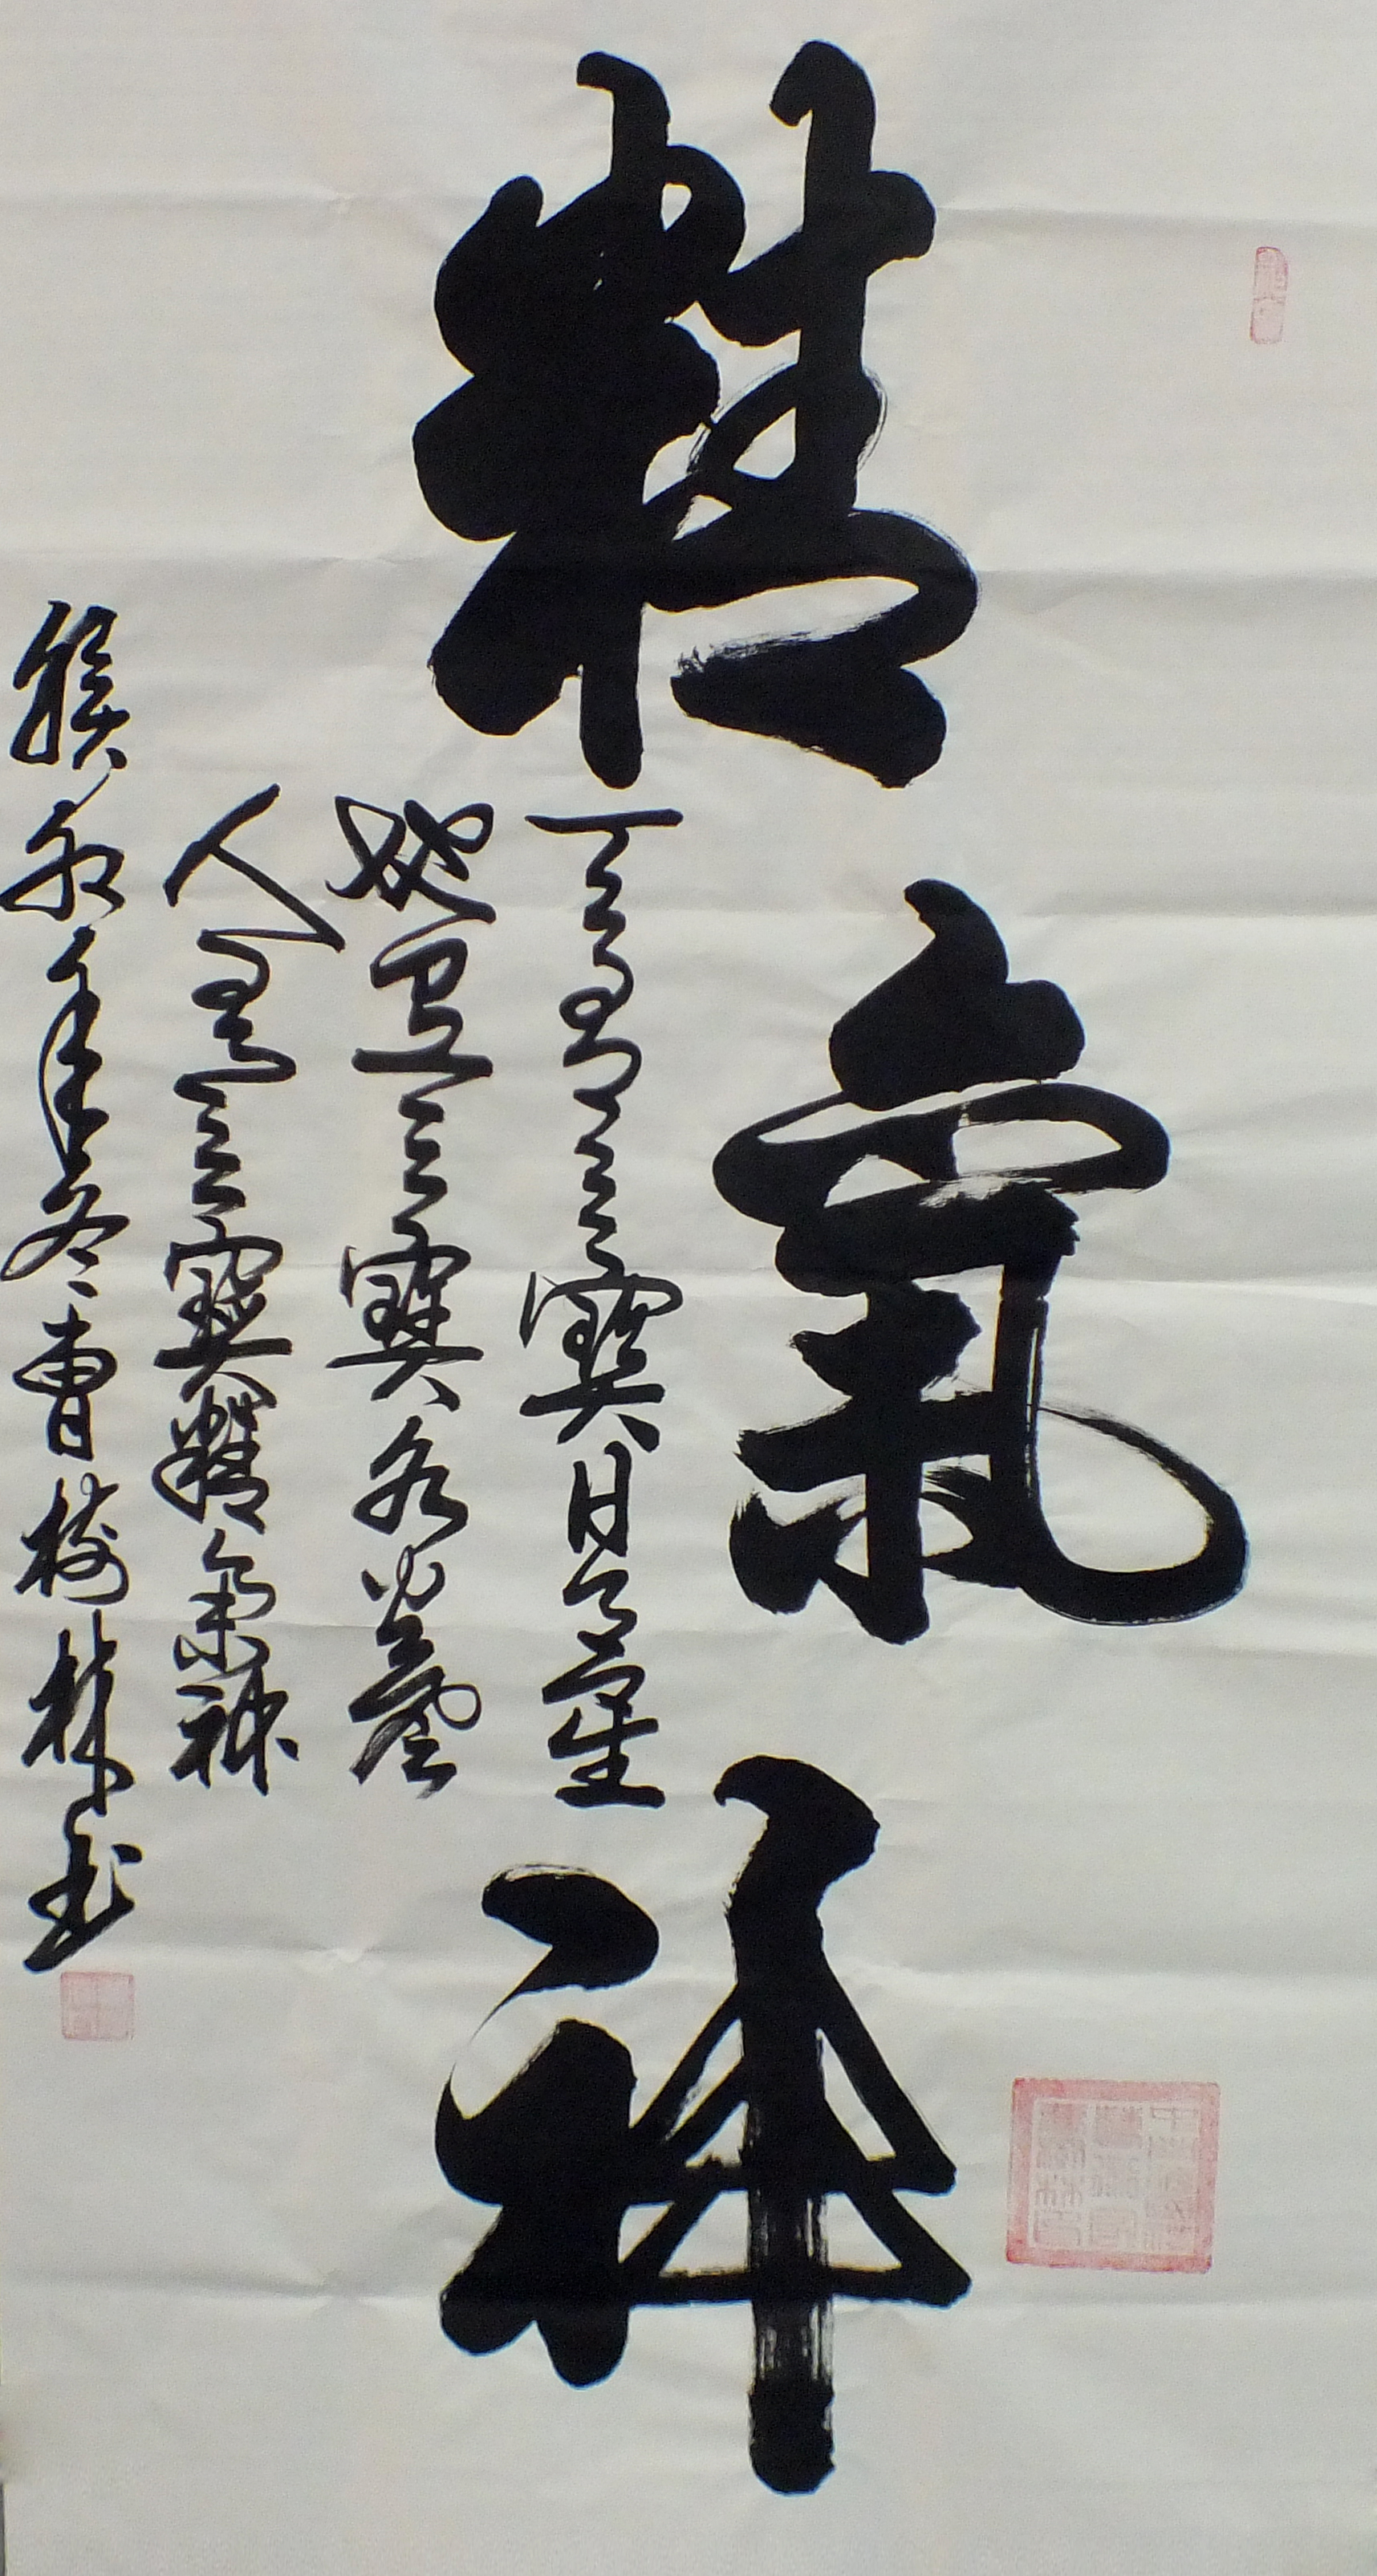 精氣神
天有三寶日月星
地有三寶水火風
人有三寶精氣神
年冬曹樹林書